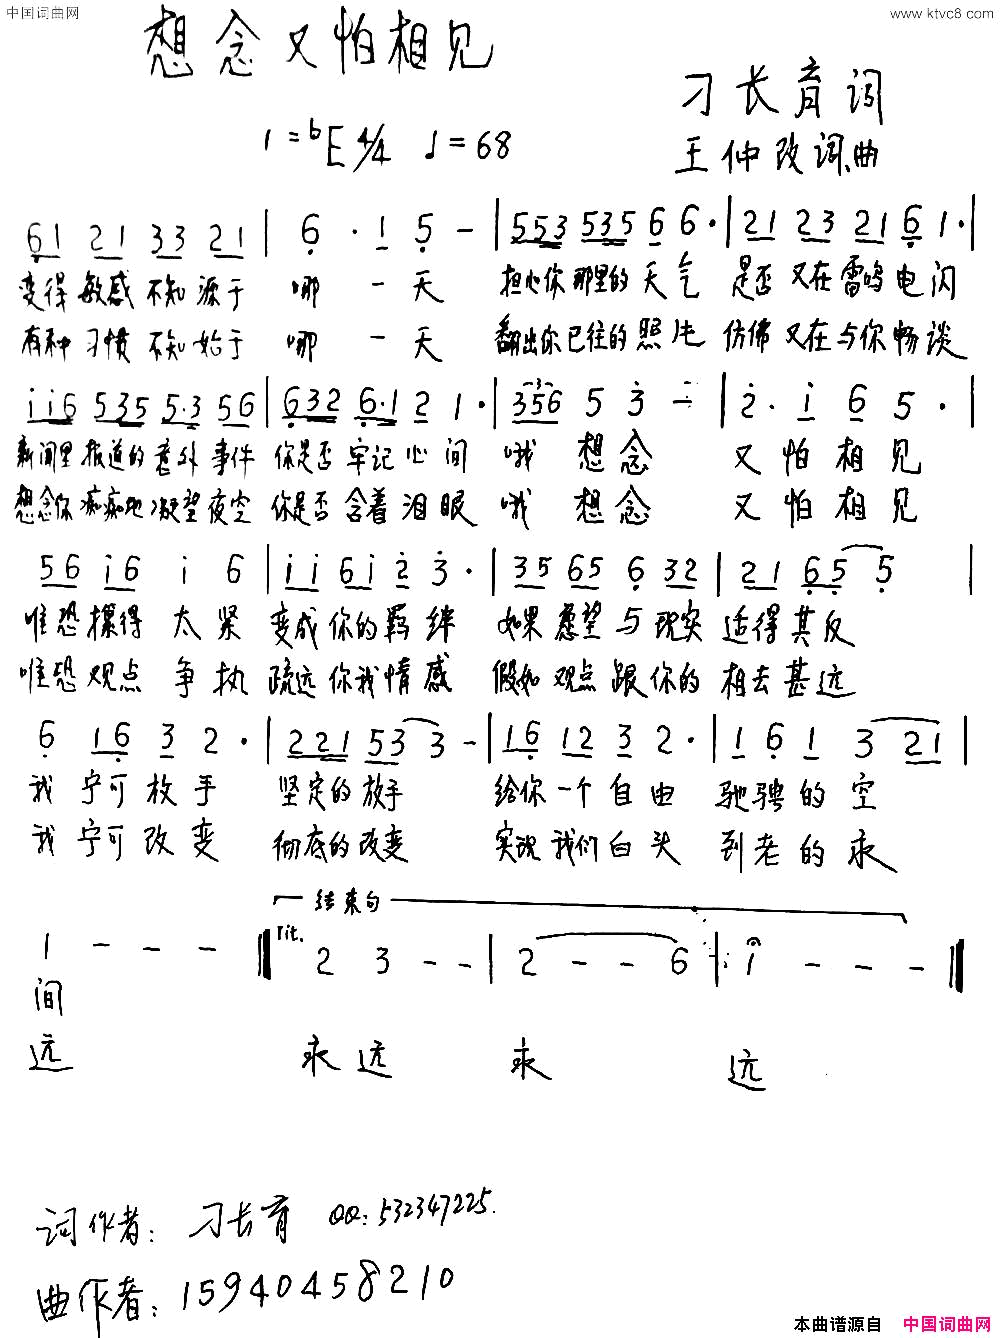 中国词曲网
www.ktvc8.com
想念又怕相见
刁长育词
1=bE 4/4 ♩=68
王仲改词、曲
61 21 33 21 | 6 · 1 5 - | 553 535 6 6· | 21 23 21 6 1· |
变得敏感不知源于 哪一天 担心你那里的天气 是否又在雷鸣电闪
有种习惯不知始于 哪一天 翻出你已往的照片 仿佛又在与你畅谈
ii6 535 5·3 56 | 632 6·1 2 1· | 356 5 3 - | 2· i 6 5· |
新闻里报道的意外事件 你是否牢记心间 哦 想念 又怕相见
想念你痴痴地凝望夜空 你是否含着泪眼 哦 想念 又怕相见
56 i6 i 6 | ii 6i 2 3· | 35 65 6 32 | 21 65 5 |
唯恐攥得太紧 变成你的羁绊 如果愿望与现实 适得其反
唯恐观点争执 疏远你我情感 假如观点跟你的 相去甚远
6 16 3 2· | 2 21 53 3 - | 16 12 3 2· | 1 6 1 3 21 |
我宁可放手 坚定的放手 给你一个自由 驰骋的空
我宁可改变 彻底的改变 实现我们白头 到老的永
结束句
1 - - - rit. 2 3 - - | 2 - - 6 | i - - -
间
远 永远 永 远
词作者：刁长育 QQ:532347225.
曲作者：15940458210
本曲谱源自 中国词曲网